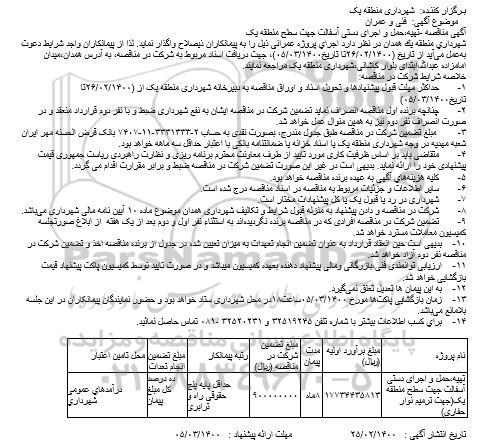 برگزار کننده: شهرداری منطقه یک
موضوع آگهی: فنی و عمران
آگهی مناقصه -تهیه،حمل و اجرای دستی آسفالت جهت سطح منطقه یک
شهرداری منطقه یک همدان در نظر دارد اجرای پروژه عمرانی ذیل را به پیمانکاران ذیصلاح واگذار نماید. لذا از پیمانکاران واجد شرایط دعوت
بعمل می‌آید از تاریخ (۲۶/۰۲/۱۴۰۰تا تاریخ۰۵/۰۳/۱۴۰۰)، جهت دریافت اسناد مربوط به شرکت در مناقصه، به آدرس همدان،میدان
امامزاده عبداله،ابتدای بلوار کاشانی،شهرداری منطقه یک مراجعه نمایند.
خلاصه شرایط شرکت در مناقصه:
۱- حداکثر مهلت قبول پیشنهادها و تحویل اسناد و اوراق مناقصه به دبیرخانه شهرداری منطقه یک از (۲۶/۰۲/۱۴۰۰تا
تاریخ۰۵/۰۳/۱۴۰۰)
۲- چنانچه برنده اول مناقصه انصراف نماید تضمین شرکت در مناقصه ایشان به نفع شهرداری ضبط و با نفر دوم قرارداد منعقد و در
صورت انصراف نفر دوم نیز به همین منوال عمل خواهد شد.
۳- مبلغ تضمین شرکت در مناقصه طبق جدول مندرج، بصورت نقدی به حساب ۲-۳۳۳۱۳۳۳-۱۱-۷۴۰۷ بانک قرض الحسنه مهر ایران
شعبه مهدیه در وجه شهرداری منطقه یک یا اسناد خزانه یا ضمانتنامه بانکی با اعتبار حداقل سه ماهه خواهد بود.
۴- متقاضی باید بر اساس ظرفیت کاری مورد تایید از طرف معاونت محترم برنامه ریزی و نظارت راهبردی ریاست جمهوری قیمت
پیشنهادی خود را ارائه نماید. بدیهی است در غیر این صورت تضمین شرکت در مناقصه ضبط و برابر مقررات اقدام می گردد.
۵- کلیه هزینه‌های آگهی به عهده برنده مناقصه خواهد بود.
۶- سایر اطلاعات و جزئیات مربوط به مناقصه در اسناد مناقصه درج شده است.
۷- شهرداری در رد یا قبول یک یا کل پیشنهادات مختار است.
۸- شرکت در مناقصه و دادن پیشنهاد به منزله قبول شرایط و تکالیف شهرداری همدان موضوع ماده ۱۰ آیین نامه مالی شهرداری می‌باشد.
۹- تضمین شرکت در مناقصه افرادی که در مناقصه برنده نگردیده‌اند به استثناء نفر اول و دوم بعد از یک هفته از ابلاغ صورتجلسه
کمیسیون معاملات مسترد خواهد شد.
۱۰- بدیهی است حین انعقاد قرارداد به عنوان تضمین انجام تعهدات به میزان تعیین شده در جدول از برنده مناقصه اخذ و تضمین شرکت در
مناقصه نفر دوم آزاد خواهد شد.
۱۱- ارزیابی توانمندی فنی،بازرگانی ومالی پیشنهاد دهنده بعهده کمیسیون میباشد و در صورت تایید توسط کمیسیون پاکت پیشنهاد قیمت
بازگشایی خواهد شد.
۱۲- به این پیمان ها تعدیل تعلق نمی‌گیرد.
۱۳- زمان بازگشایی پاکت‌ها مورخ ۰۵/۰۳/۱۴۰۰ساعت۱۸در محل شهرداری ستاد خواهد بود و حضور نمایندگان پیمانکاران در این جلسه
بلامانع می‌باشد.
۱۴- برای کسب اطلاعات بیشتر با شماره تلفن ۳۲۵۱۹۲۴۵ و ۳۲۵۲۰۲۳۱ -۰۸۱ تماس حاصل نمائید.
نام پروژه مبلغ برآورد اولیه (ریال) مدت پیمان مبلغ تضمین شرکت در مناقصه (ریال) رتبه پیمانکار مبلغ تضمین انجام تعدات محل تامین اعتبار
تهیه،حمل و اجرای دستی آسفالت جهت سطح منطقه یک(جهت ترمیم نوار حفاری) ۱۷۷۳۴۴۳۵۸۱۳ ۸ماه ۹۰۰۰۰۰۰۰۰ حداقل پایه پنج حقوقی راه و ترابری ده درصد کل مبلغ پیمان درآمدهای عمومی شهرداری
تاریخ انتشار آگهی : ۲۵/۰۲/۱۴۰۰ مهلت ارائه پیشنهاد : ۰۵/۰۳/۱۴۰۰